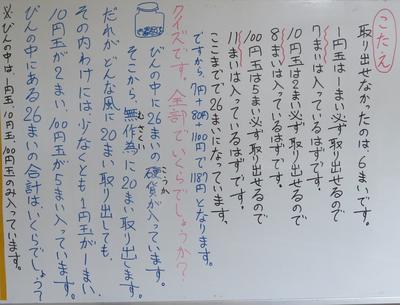 こたえ
取り出せなかったのは、6まいです。
1円玉は1まい必ず取り出せるので
7まいは入っているはずです。
10円玉は2まい必ず取り出せるので
8まいは入っているはずです。
100円玉は5まい必ず取り出せるので
11まいは入っているはずです。
ここまでで26まいになっています。
ですから、7円+80円+1100円で1187円となります。
クイズです。全計でいくらでしょうか？
びんの中に26まいの硬貨が入っています。
こうか
そこから無作為に20まい取り出します。
むさくい
だれがどんな風に20まい取り出しても、
その内わけには、少なくとも1円玉が1まい、
10円玉が2まい、100円玉が5まい入っています。
びんの中にある26まいの合計はいくらでしょう？
※びんの中は1円玉、10円玉、100円玉のみ入っています。